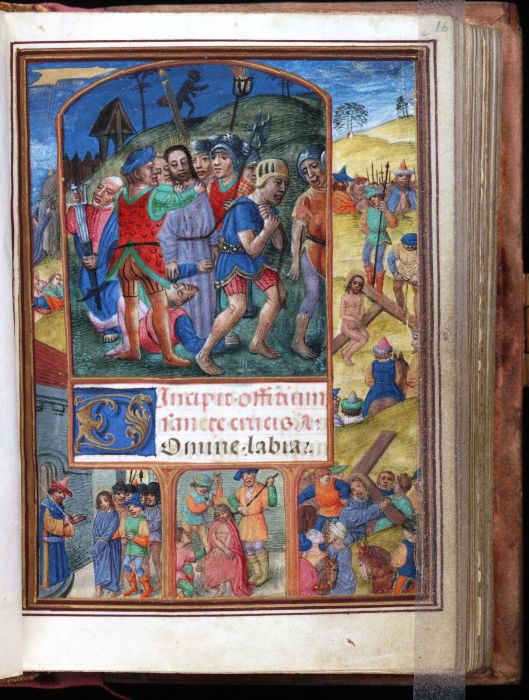 16
Incipit officium
sancte crucis
Omine labia